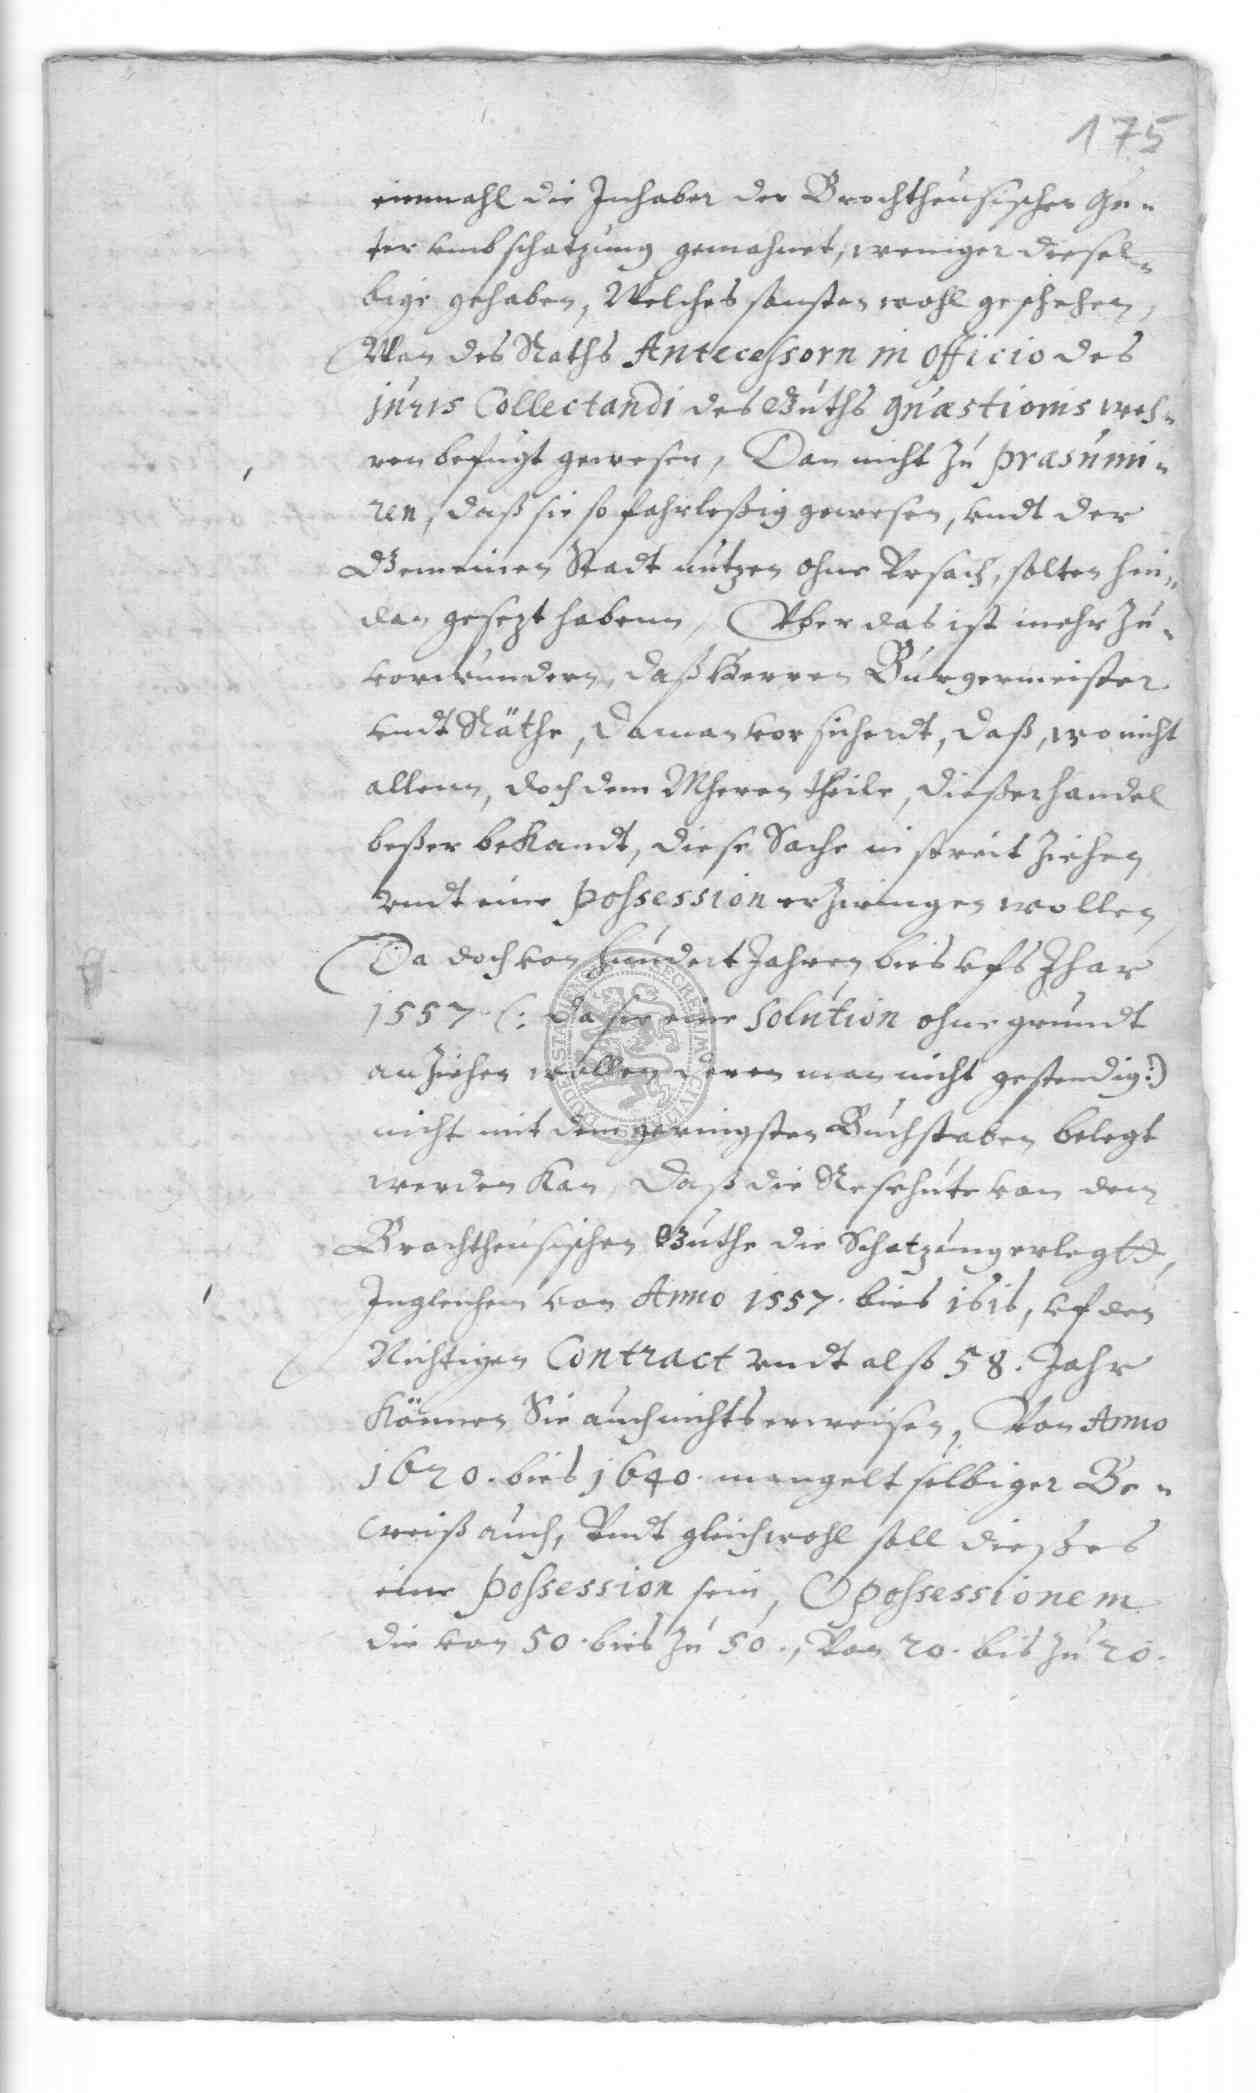 175
einmahl die Inhaber der Brochtheusischer Gu-
ter umb schatzung gemahnet, weniger diesel-
bige gehaben, Welches sonsten wohl geschehen,
Wan des Raths Antecessorn in officio des
juris Collectandi des Guths quæstionis weh-
ren befugt gewesen, Dan nicht zu præsumi-
ren, daß sie so fahrleßig gewesen, undt der
Gemeinen Stadt nutzen ohne Ursach, solten hin-
dan gesezt habenn, Uber das ist mehr zu-
vorwundern, daß Herren Burgermeister
undt Räthe, da man vorsichendt, daß, wo nicht
allenn, doch dem Mheren theile, dießer handel
beßer bekandt, diese Sache in streit ziehen
undt eine possession erzwingen wollen
Da doch von hundert Jahren bies ufs Jhar
1557 (: da sie eine solution ohne grundt
anziehen wollen deren man nicht gestendig :)
nicht mit dem geringsten Buchstaben belegt
werden kan, daß die Resehute von dem
Brochtheusischen Guthe die Schatzung erlegt,
Ingleichen von Anno 1557. bies 1615, uf den
Nichtigen Contract undt alß 58. Jahr
können Sie auch nichts erweisen, Von Anno
1620. bies 1640. mangelt selbiger Be-
weiß auch, Undt gleichwohl soll dießes
eine possession sein, O possessionem
die von 50. bies zu 50., Von 20. bis zu 20.